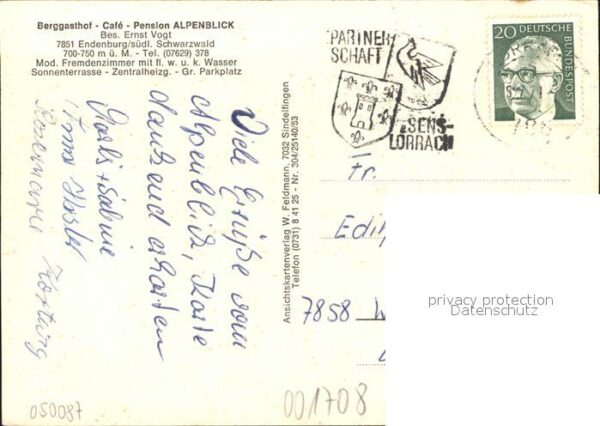 Berggasthof - Café - Pension ALPENBLICK
Bes. Ernst Vogt
7851 Endenburg/südl. Schwarzwald
700-750 m ü. M. - Tel. (07629) 378
Mod. Fremdenzimmer mit fl. w. u. k. Wasser
Sonnenterrasse - Zentralheizg. - Gr. Parkplatz
Viele Grüße vom
Alpenblick, Karte
dankend erhalten
Rosemarie
Ansichtskartenverlag W. Feldmann, 7032 Sindelfingen
Telefon (0731) 8 41 25 - Nr. 304/25140/53
PARTNER
SCHAFT
SENS-
LÖRRACH
20 DEUTSCHE
BUNDESPOST
Fr
Edi
7858 W
privacy protection
Datenschutz
050087
001708